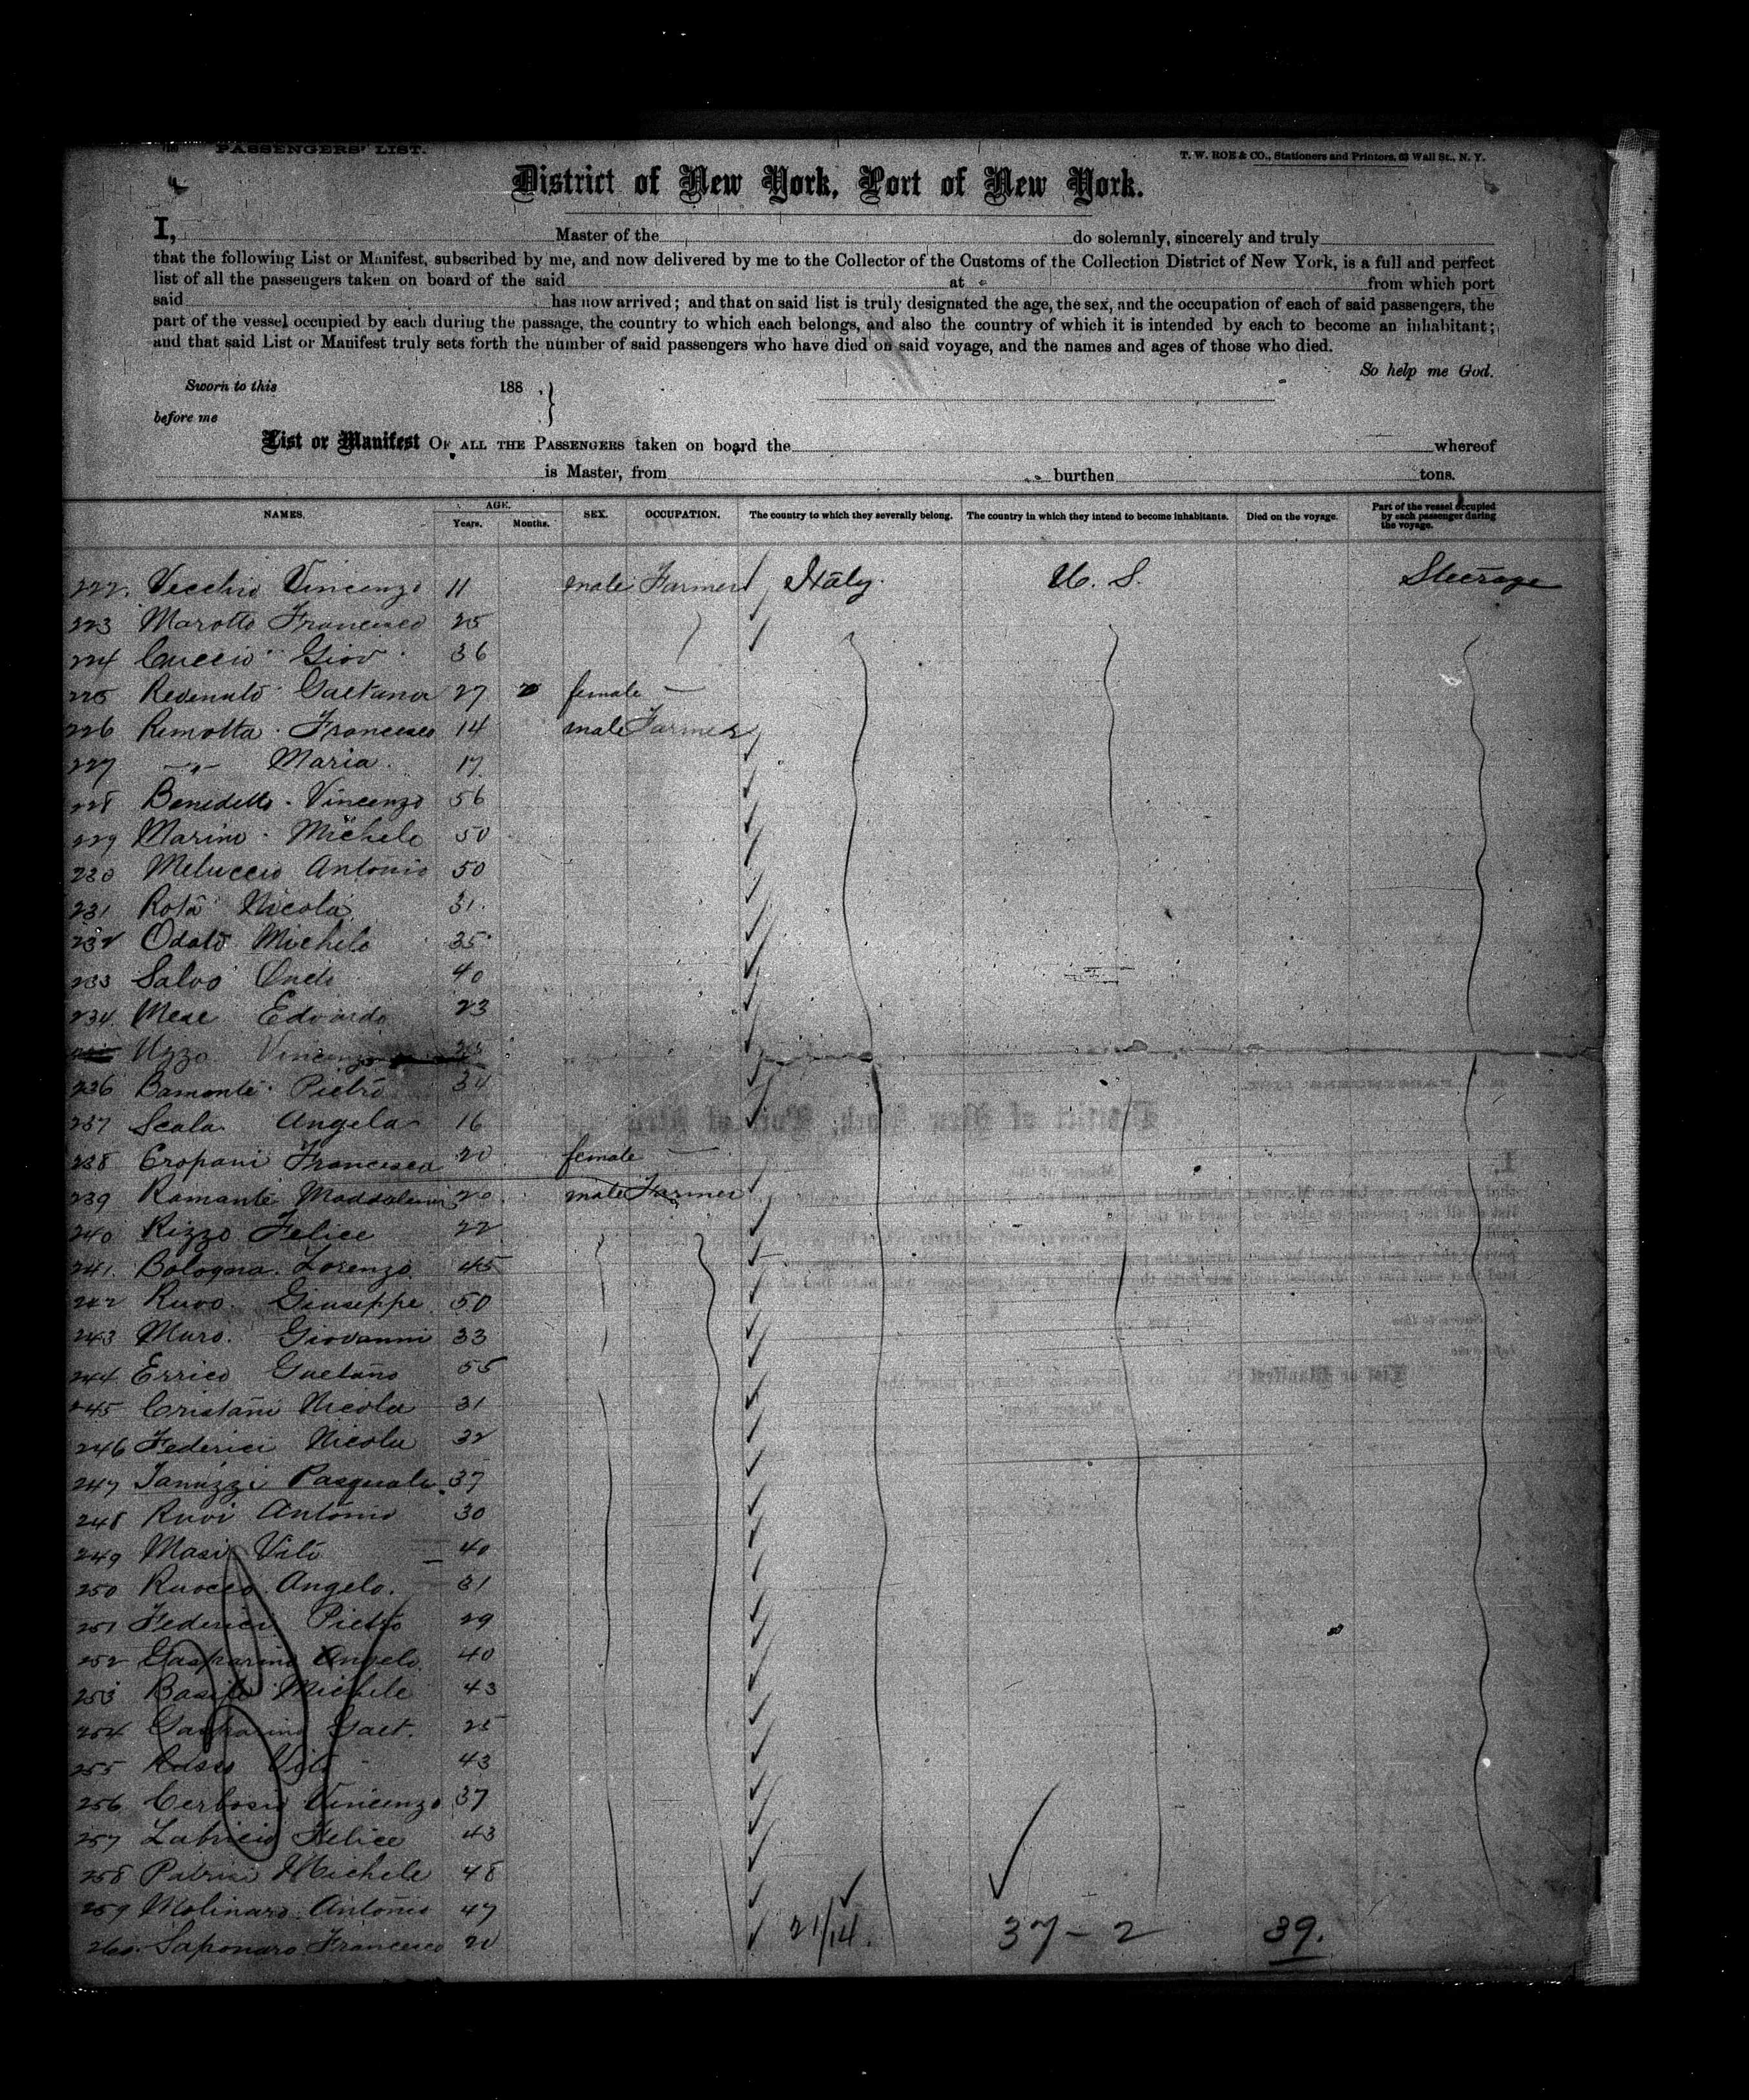 PASSENGERS' LIST.
T. W. ROE & CO., Stationers and Printers, 63 Wall St., N. Y.
District of New York, Port of New York.
I, Master of the do solemnly, sincerely and truly
that the following List or Manifest, subscribed by me, and now delivered by me to the Collector of the Customs of the Collection District of New York, is a full and perfect
list of all the passengers taken on board of the said at from which port
said has now arrived; and that on said list is truly designated the age, the sex, and the occupation of each of said passengers, the
part of the vessel occupied by each during the passage, the country to which each belongs, and also the country of which it is intended by each to become an inhabitant;
and that said List or Manifest truly sets forth the number of said passengers who have died on said voyage, and the names and ages of those who died.
So help me God.
Sworn to this 188 ,
before me
List or Manifest OF ALL THE PASSENGERS taken on board the whereof
is Master, from burthen tons.
NAMES. AGE. Years. Months. SEX. OCCUPATION. The country to which they severally belong. The country in which they intend to become inhabitants. Died on the voyage. Part of the vessel occupied by each passenger during the voyage.
222. Vecchio Vincenzo 11 male Farmer Italy. U. S. Steerage
223 Marotto Francesco 25
224 Cuccio Giov 36
225 Gaetana 27 female —
226 Remotta Francesco 14 male Farmer
227 —"— Maria 17
228 Benedetto Vincenzo 56
229 Marino Michele 50
230 Meluccio Antonio 50
231 Rota Nicola 31
232 Odato Michele 35
233 Salvo 40
234 Mese Edoardo 23
Uzzo Vincenzo 25
236 Bamonte Pietro 34
237 Scala Angela 16
238 Cropani Francesca 20 female —
239 Ramante Maddalena 20 male Farmer
240 Rizzo Felice 22
241. Bologna Lorenzo 45
242 Ruvo Giuseppe 50
243 Muro. Giovanni 33
244 Errico Gaetano 55
245 Cristani Nicola 31
246 Federici Nicola 32
247 Ianuzzi Pasquale 37
248 Ruvi Antonio 30
249 Masi Vito 40
250 Ruocco Angelo. 31
251 Federici Pietro 29
252 Gasparino Angelo 40
253 Basile Michele 43
254 Gasparino Gaet. 25
255 Vito 43
256 Cerbosio Vincenzo 37
257 Labricio Felice 43
258 Michele 48
259 Molinaro Antonio 47
260. Saponaro Francesco 20
21/14. 37 - 2 39.